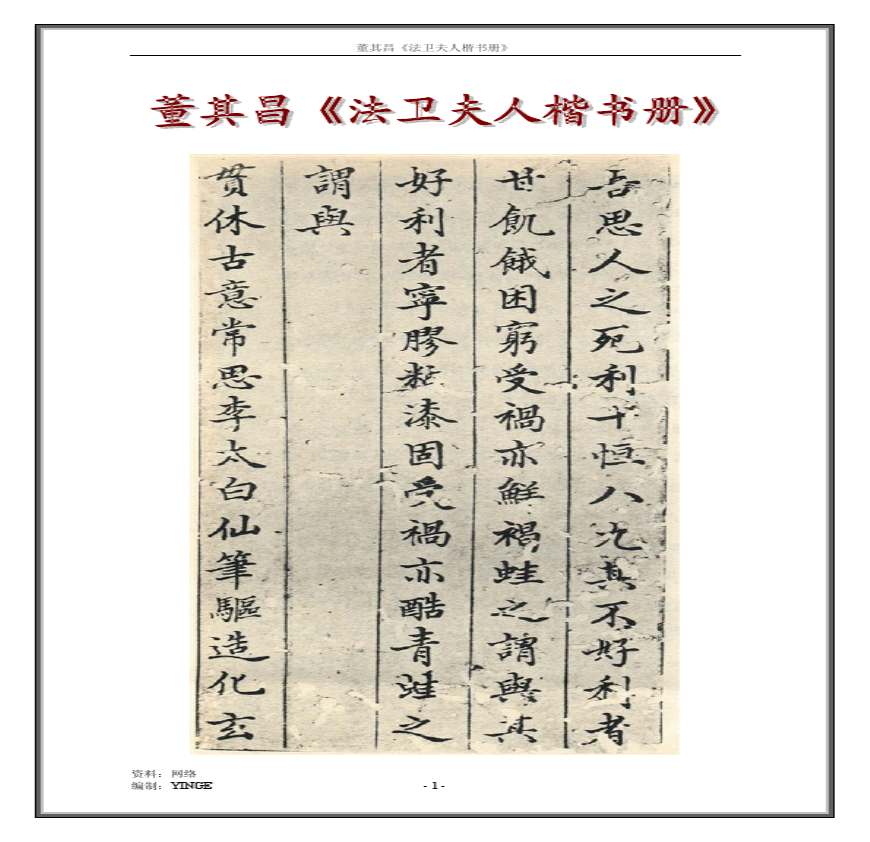 董其昌《法卫夫人楷书册》
董其昌《法卫夫人楷书册》
吾思人之死利十恒八九其不好利者
甘飢餓困窮受禍亦鮮褐蛙之謂與其
好利者寧膠粘漆固受禍亦酷青蛙之
謂與
貫休古意常思李太白仙筆驅造化玄
资料：网络
编制：YINGE
- 1 -